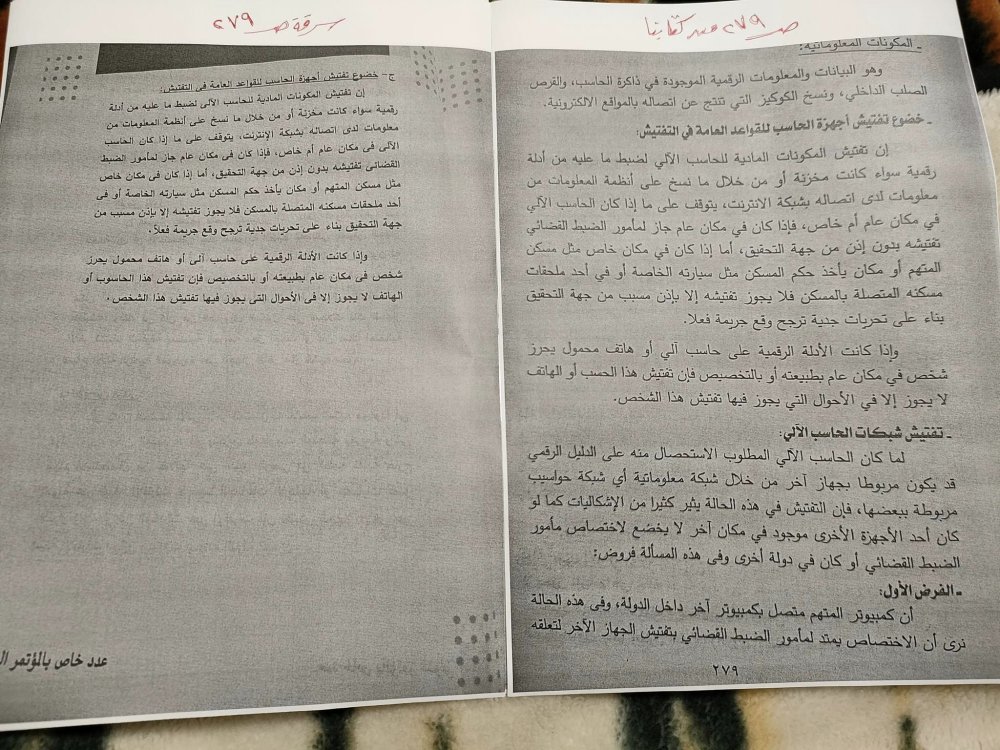 ص ٢٧٩ من كتابنا
ـ المكونات المعلوماتية:
وهو البيانات والمعلومات الرقمية الموجودة في ذاكرة الحاسب، والقرص
الصلب الداخلي، ونسخ الكوكيز التي تنتج عن اتصاله بالمواقع الالكترونية.
ـ خضوع تفتيش أجهزة الحاسب للقواعد العامة في التفتيش:
إن تفتيش المكونات المادية للحاسب الآلي لضبط ما عليه من أدلة
رقمية سواء كانت مخزنة أو من خلال ما نسخ على أنظمة المعلومات من
معلومات لدى اتصاله بشبكة الانترنت، يتوقف على ما إذا كان الحاسب الآلي
في مكان عام أم خاص، فإذا كان في مكان عام جاز لمأمور الضبط القضائي
تفتيشه بدون إذن من جهة التحقيق، أما إذا كان في مكان خاص مثل مسكن
المتهم أو مكان يأخذ حكم المسكن مثل سيارته الخاصة أو في أحد ملحقات
مسكنه المتصلة بالمسكن فلا يجوز تفتيشه إلا بإذن مسبب من جهة التحقيق
بناء على تحريات جدية ترجح وقع جريمة فعلا.
وإذا كانت الأدلة الرقمية على حاسب آلي أو هاتف محمول يحرز
شخص في مكان عام بطبيعته أو بالتخصيص فإن تفتيش هذا الحسب أو الهاتف
لا يجوز إلا في الأحوال التي يجوز فيها تفتيش هذا الشخص.
ـ تفتيش شبكات الحاسب الآلي:
لما كان الحاسب الآلي المطلوب الاستحصال منه على الدليل الرقمي
قد يكون مربوطا بجهاز آخر من خلال شبكة معلوماتية أي شبكة حواسيب
مربوطة ببعضها، فإن التفتيش في هذه الحالة يثير كثيرا من الإشكاليات كما لو
كان أحد الأجهزة الأخرى موجود في مكان آخر لا يخضع لاختصاص مأمور
الضبط القضائي أو كان في دولة أخرى وفى هذه المسألة فروض:
ـ الفرض الأول:
أن كمبيوتر المتهم متصل بكمبيوتر آخر داخل الدولة، وفى هذه الحالة
نرى أن الاختصاص يمتد لمأمور الضبط القضائي بتفتيش الجهاز الآخر لتعلقه
٢٧٩
سرقة ص ٢٧٩
ج- خضوع تفتيش أجهزة الحاسب للقواعد العامة فى التفتيش:
إن تفتيش المكونات المادية للحاسب الآلى لضبط ما عليه من أدلة
رقمية سواء كانت مخزنة أو من خلال ما نسخ على أنظمة المعلومات من
معلومات لدى اتصاله بشبكة الإنترنت، يتوقف على ما إذا كان الحاسب
الآلى فى مكان عام أم خاص، فإذا كان فى مكان عام جاز لمأمور الضبط
القضائى تفتيشه بدون إذن من جهة التحقيق، أما إذا كان فى مكان خاص
مثل مسكن المتهم أو مكان يأخذ حكم المسكن مثل سيارته الخاصة أو فى
أحد ملحقات مسكنه المتصلة بالمسكن فلا يجوز تفتيشه إلا بإذن مسبب من
جهة التحقيق بناء على تحريات جدية ترجح وقع جريمة فعلاً.
وإذا كانت الأدلة الرقمية على حاسب آلى أو هاتف محمول يحرز
شخص فى مكان عام بطبيعته أو بالتخصيص فإن تفتيش هذا الحاسوب أو
الهاتف لا يجوز إلا فى الأحوال التى يجوز فيها تفتيش هذا الشخص.
عدد خاص بالمؤتمر